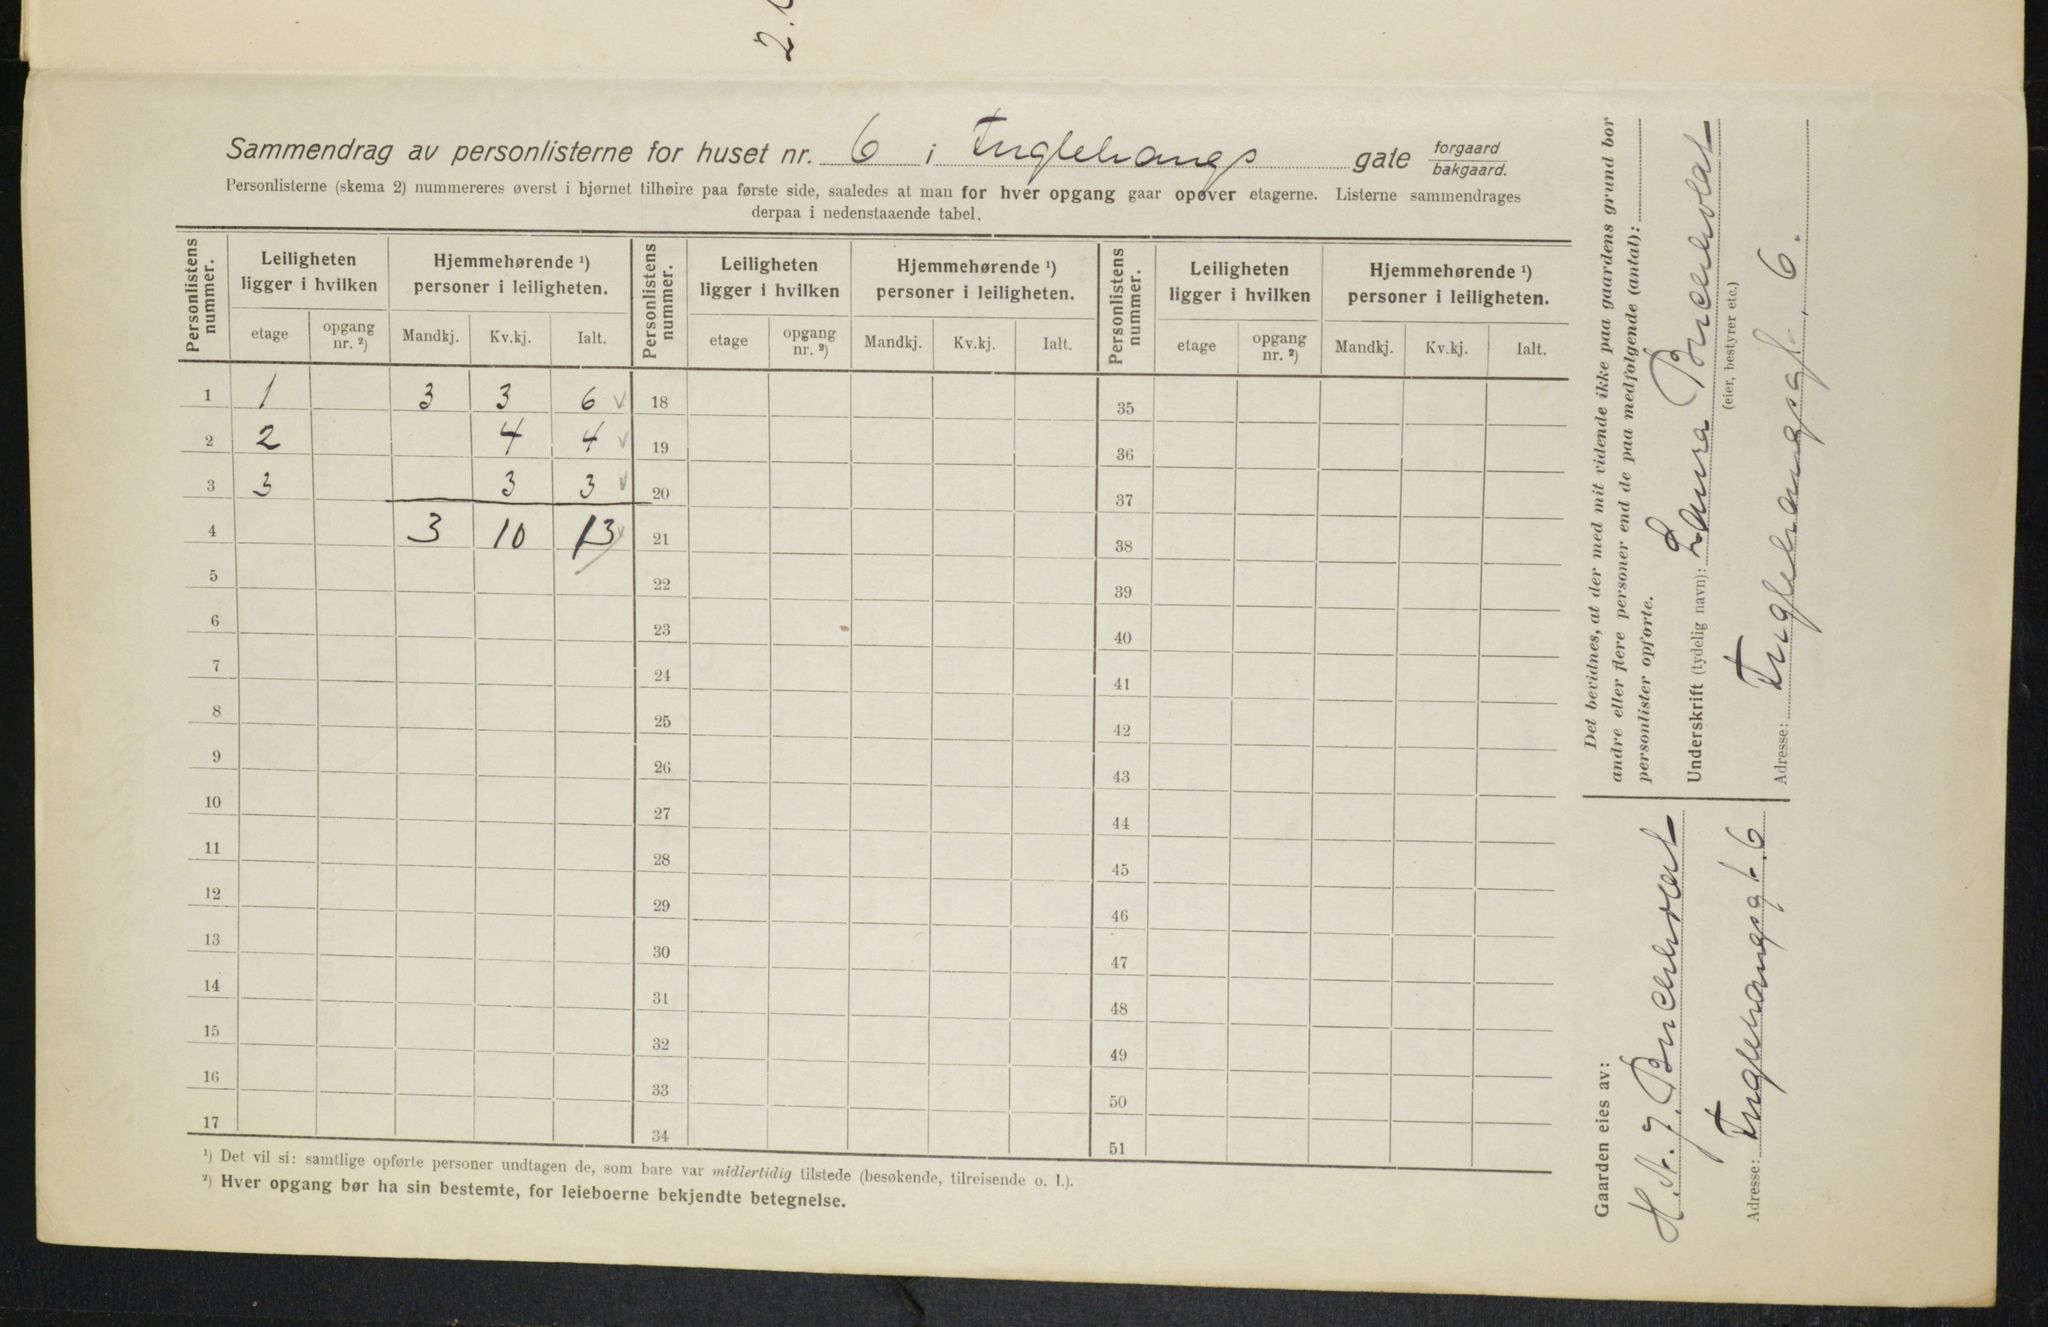 2.
Sammendrag av personlisterne for huset nr. 6 i Fuglehaugs gate forgaard bakgaard.
Personlisterne (skema 2) nummereres øverst i hjørnet tilhøire paa første side, saaledes at man for hver opgang gaar opover etagerne. Listerne sammendrages
derpaa i nedenstaaende tabel.
Personlistens nummer. Leiligheten ligger i hvilken Hjemmehørende ¹) personer i leiligheten. Personlistens nummer. Leiligheten ligger i hvilken Hjemmehørende ¹) personer i leiligheten. Personlistens nummer. Leiligheten ligger i hvilken Hjemmehørende ¹) personer i leiligheten.
etage opgang nr. ²) Mandkj. Kv.kj. Ialt. etage opgang nr. ²) Mandkj. Kv.kj. Ialt. etage opgang nr. ²) Mandkj. Kv.kj. Ialt.
1 1 3 3 6 18 35
2 2 4 4 19 36
3 3 3 3 20 37
4 3 10 13 21 38
5 22 39
6 23 40
7 24 41
8 25 42
9 26 43
10 27 44
11 28 45
12 29 46
13 30 47
14 31 48
15 32 49
16 33 50
17 34 51
¹) Det vil si: samtlige opførte personer undtagen de, som bare var midlertidig tilstede (besøkende, tilreisende o. l.).
²) Hver opgang bør ha sin bestemte, for leieboerne bekjendte betegnelse.
Det bevidnes, at der med mit vidende ikke paa gaardens grund bor
andre eller flere personer end de paa medfølgende (antal):
personlister opførte.
Underskrift (tydelig navn): Laura Buchholdt
(eier, bestyrer etc.)
Adresse: Fuglehaugsgt. 6.
Gaarden eies av:
H. N. J. Buchholdt
Adresse: Fuglehaugsgt. 6